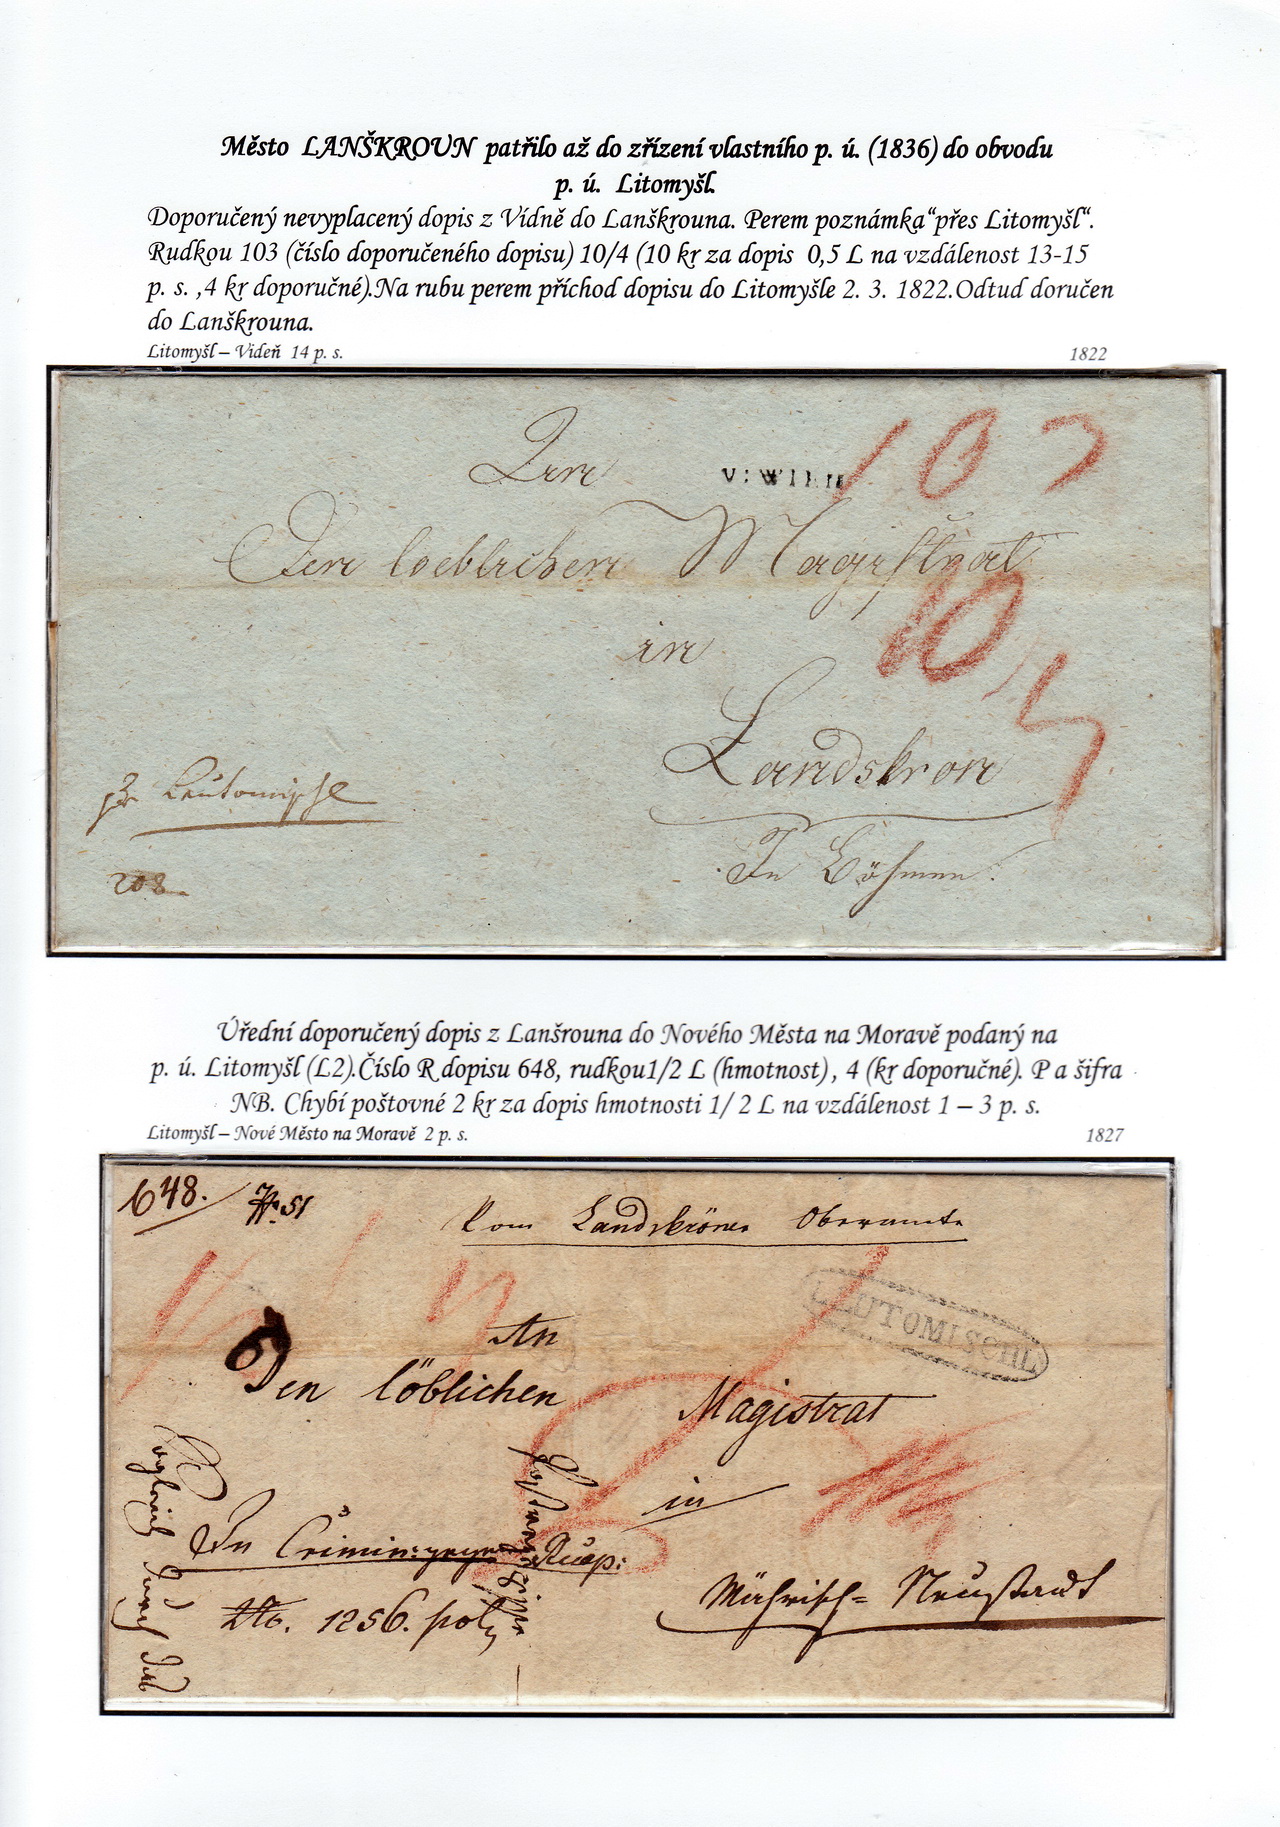 Město LANŠKROUN patřilo až do zřízení vlastního p. ú. (1836) do obvodu
p. ú. Litomyšl.
Doporučený nevyplacený dopis z Vídně do Lanškrouna. Perem poznámka“přes Litomyšl“.
Rudkou 103 (číslo doporučeného dopisu) 10/4 (10 kr za dopis 0,5 L na vzdálenost 13-15
p. s. ,4 kr doporučné).Na rubu perem příchod dopisu do Litomyšle 2. 3. 1822.Odtud doručen
do Lanškrouna.
Litomyšl – Videň 14 p. s. 1822
103
V:WIEN
Den loeblichen Magistrat
10/4
in
Landskron
pr Leutomischl
In Böhmen.
208
Úřední doporučený dopis z Lanšrouna do Nového Města na Moravě podaný na
p. ú. Litomyšl (L2).Číslo R dopisu 648, rudkou1/2 L (hmotnost) , 4 (kr doporučné). P a šifra
NB. Chybí poštovné 2 kr za dopis hmotnosti 1/ 2 L na vzdálenost 1 – 3 p. s.
Litomyšl – Nové Město na Moravě 2 p. s. 1827
648.
51
Vom Landskroner Oberamte
LEUTOMISCHL
An
Den löblichen Magistrat
in
In
No. 1256. pol
Mährisch= Neustadt